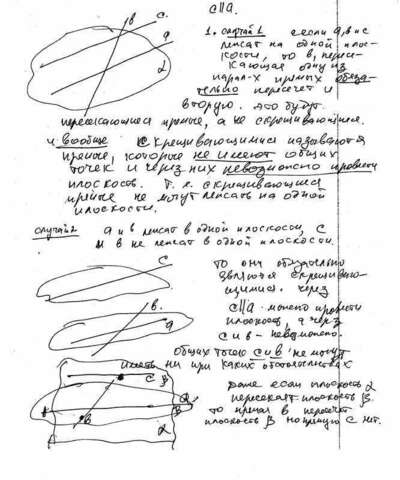 c||a.
в c.
a
α
1. случай 1 если a, в и c
лежат на одной плос-
кости, то в, пересе-
кающая одну из
парал-х прямых обяза-
тельно пересечет и
вторую. это будут
пересекающиеся прямые, а не скрещивающиеся.
и вообще скрещивающимися называются
прямые, которые не имеют общих
точек и через них невозможно провести
плоскость. Т.е. скрещивающиеся
прямые не могут лежать на одной
плоскости.
случай 2 a и в лежат в одной плоскости, c
и в не лежат в одной плоскости.
c.
то они обязательно
являются скрещиваю-
щимися. через
в.
a
c||a можно провести
плоскость, а через
c и в - невозможно.
общих точек c и в не могут
иметь ни при каких обстоятельствах
c β
даже если плоскость α
пересекает плоскость β
a
в
то прямая в пересечет
плоскость β но прямую c нет.
α